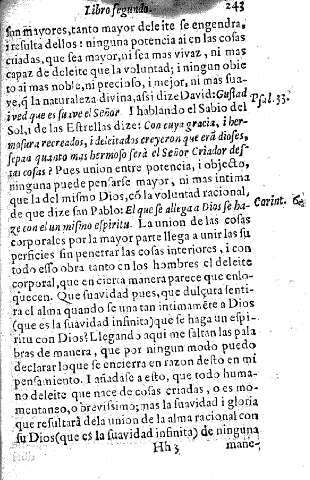 Libro segundo. 243
son mayores, tanto mayor deleite se engendra,
i resulta dellos: ninguna potencia ai en las cosas
criadas, que sea mayor, ni sea mas vivaz, ni mas
capaz de deleite que la voluntad; i ningun obie
to ai mas noble, ni precioso, i mejor, ni mas sua-
ve, q̃ la naturaleza divina, assi dize David: Gustad
i ved que es suave el Señor. I hablando el Sabio del
Psal. 33.
Sol, i de las Estrellas dize: Con cuya gracia, i her-
mosura recreados, i deleitados creyeron que erã dioses,
sepan quanto mas hermoso serà el Señor Criador des-
tas cosas? Pues union entre potencia, i objecto,
ninguna puede pensarse mayor, ni mas intima
que la del mismo Dios, cõ la voluntad racional,
de que dize san Pablo: El que se allega a Dios se ha-
Corint. 6.
ze con el un mismo espiritu. La union de las cosas
corporales por la mayor parte llega a unir las su
perficies sin penetrar las cosas interiores, i con
todo esso obra tanto en los hombres el deleite
corporal, que en cierta manera parece que enlo-
quecen. Que suavidad pues, que dulçura senti-
ra el alma quando se una tan intimamẽte a Dios
(que es la suavidad infinita) que se haga un espi-
ritu con Dios? Llegando aqui me faltan las pala
bras de manera, que por ningun modo puedo
declarar lo que se encierra en razon desto en mi
pensamiento. I añadase a esto, que todo huma-
no deleite que nace de cosas criadas, o es mo-
mentaneo, o brevissimo; mas la suavidad i gloria
que resultarà dela union de la alma racional con
su Dios (que es la suavidad infinita) de ninguna
Hh 3 mane-